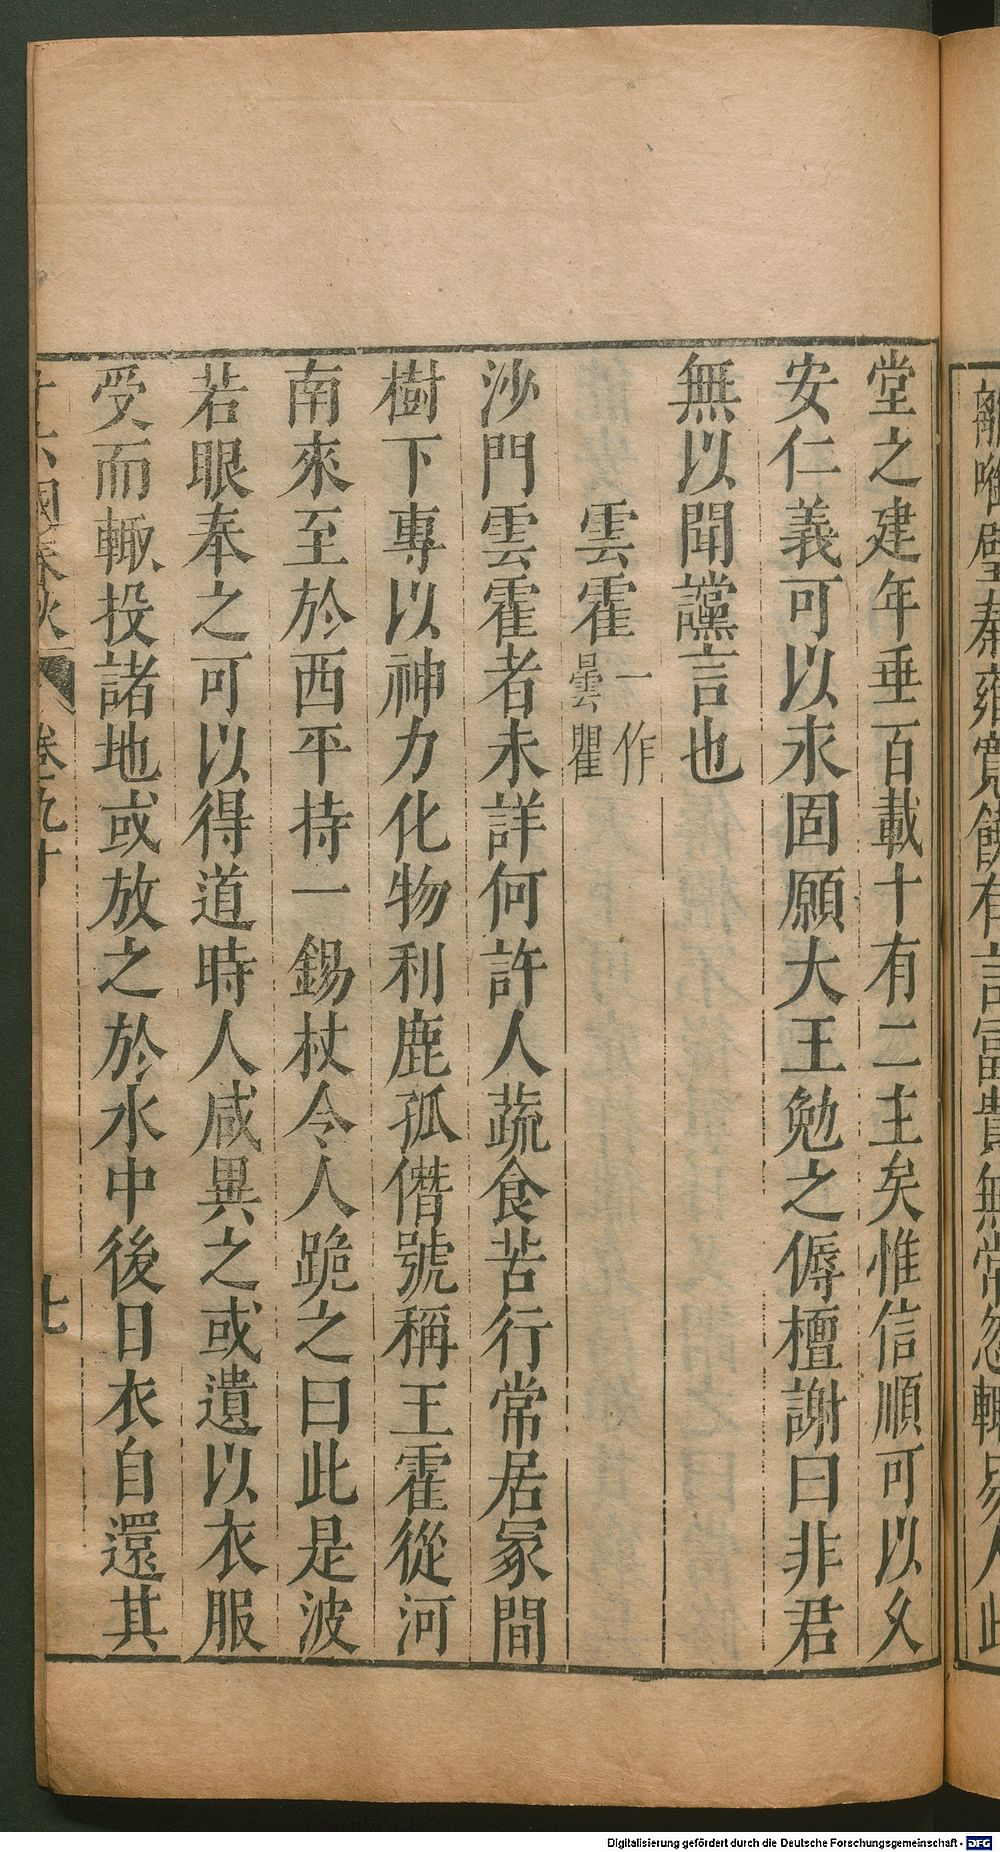 堂之建年垂百載十有二主矣惟信順可以久
安仁義可以永固願大王勉之傉檀謝曰非君
無以聞讜言也
雲霍一作曇瞿
沙門雲霍者未詳何許人蔬食苦行常居冢間
樹下專以神力化物利鹿孤僭號稱王霍從河
南來至於西平持一錫杖令人跪之曰此是波
若眼奉之可以得道時人咸異之或遺以衣服
受而輙投諸地或放之於水中後日衣自還其
十六國春秋 卷九十 七
Digitalisierung gefördert durch die Deutsche Forschungsgemeinschaft - DFG